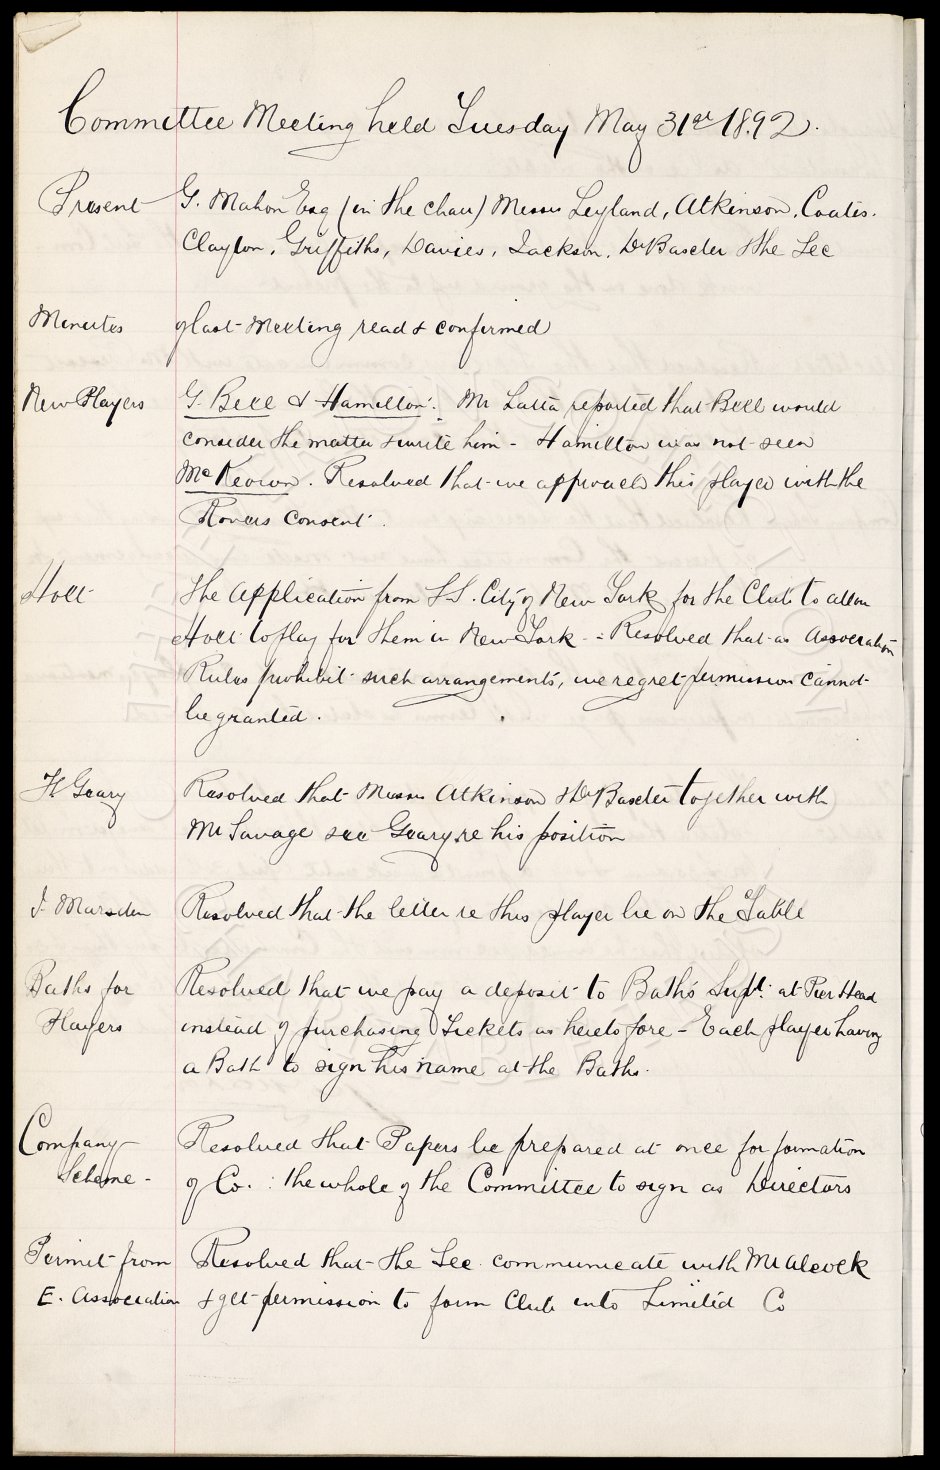 Committee Meeting held Tuesday May 31st 1892.
Present G. Mahon Esq (in the chair) Messrs Leyland, Atkinson, Coates.
Clayton, Griffiths, Davies, Jackson, Dr Baxter & the Sec
Minutes of last Meeting read & confirmed
New Players G. Bell & Hamilton. Mr Latta reported that Bell would
consider the matter & write him - Hamilton was not seen
McKeown. Resolved that we approach this player with the
Rovers consent.
Holt The Application from S.S. City of New York for the Club to allow
Holt to play for them in New York - : Resolved that as Association
Rules prohibit such arrangements, we regret permission cannot
be granted.
H Geary Resolved that Messrs Atkinson & Dr Baxter together with
Mr Savage see Geary re his position
J. Marsden Resolved that the letter re this player lie on the Table
Baths for Resolved that we pay a deposit to Baths Supt. at Pier Head
Players instead of purchasing Tickets as heretofore - Each player having
a Bath to sign his name at the Baths.
Company Resolved that Papers be prepared at once for formation
Scheme - of Co. : the whole of the Committee to sign as Directors
Permit from Resolved that the Sec communicate with Mr Alcock
E. Association & get permission to form Club into Limited Co